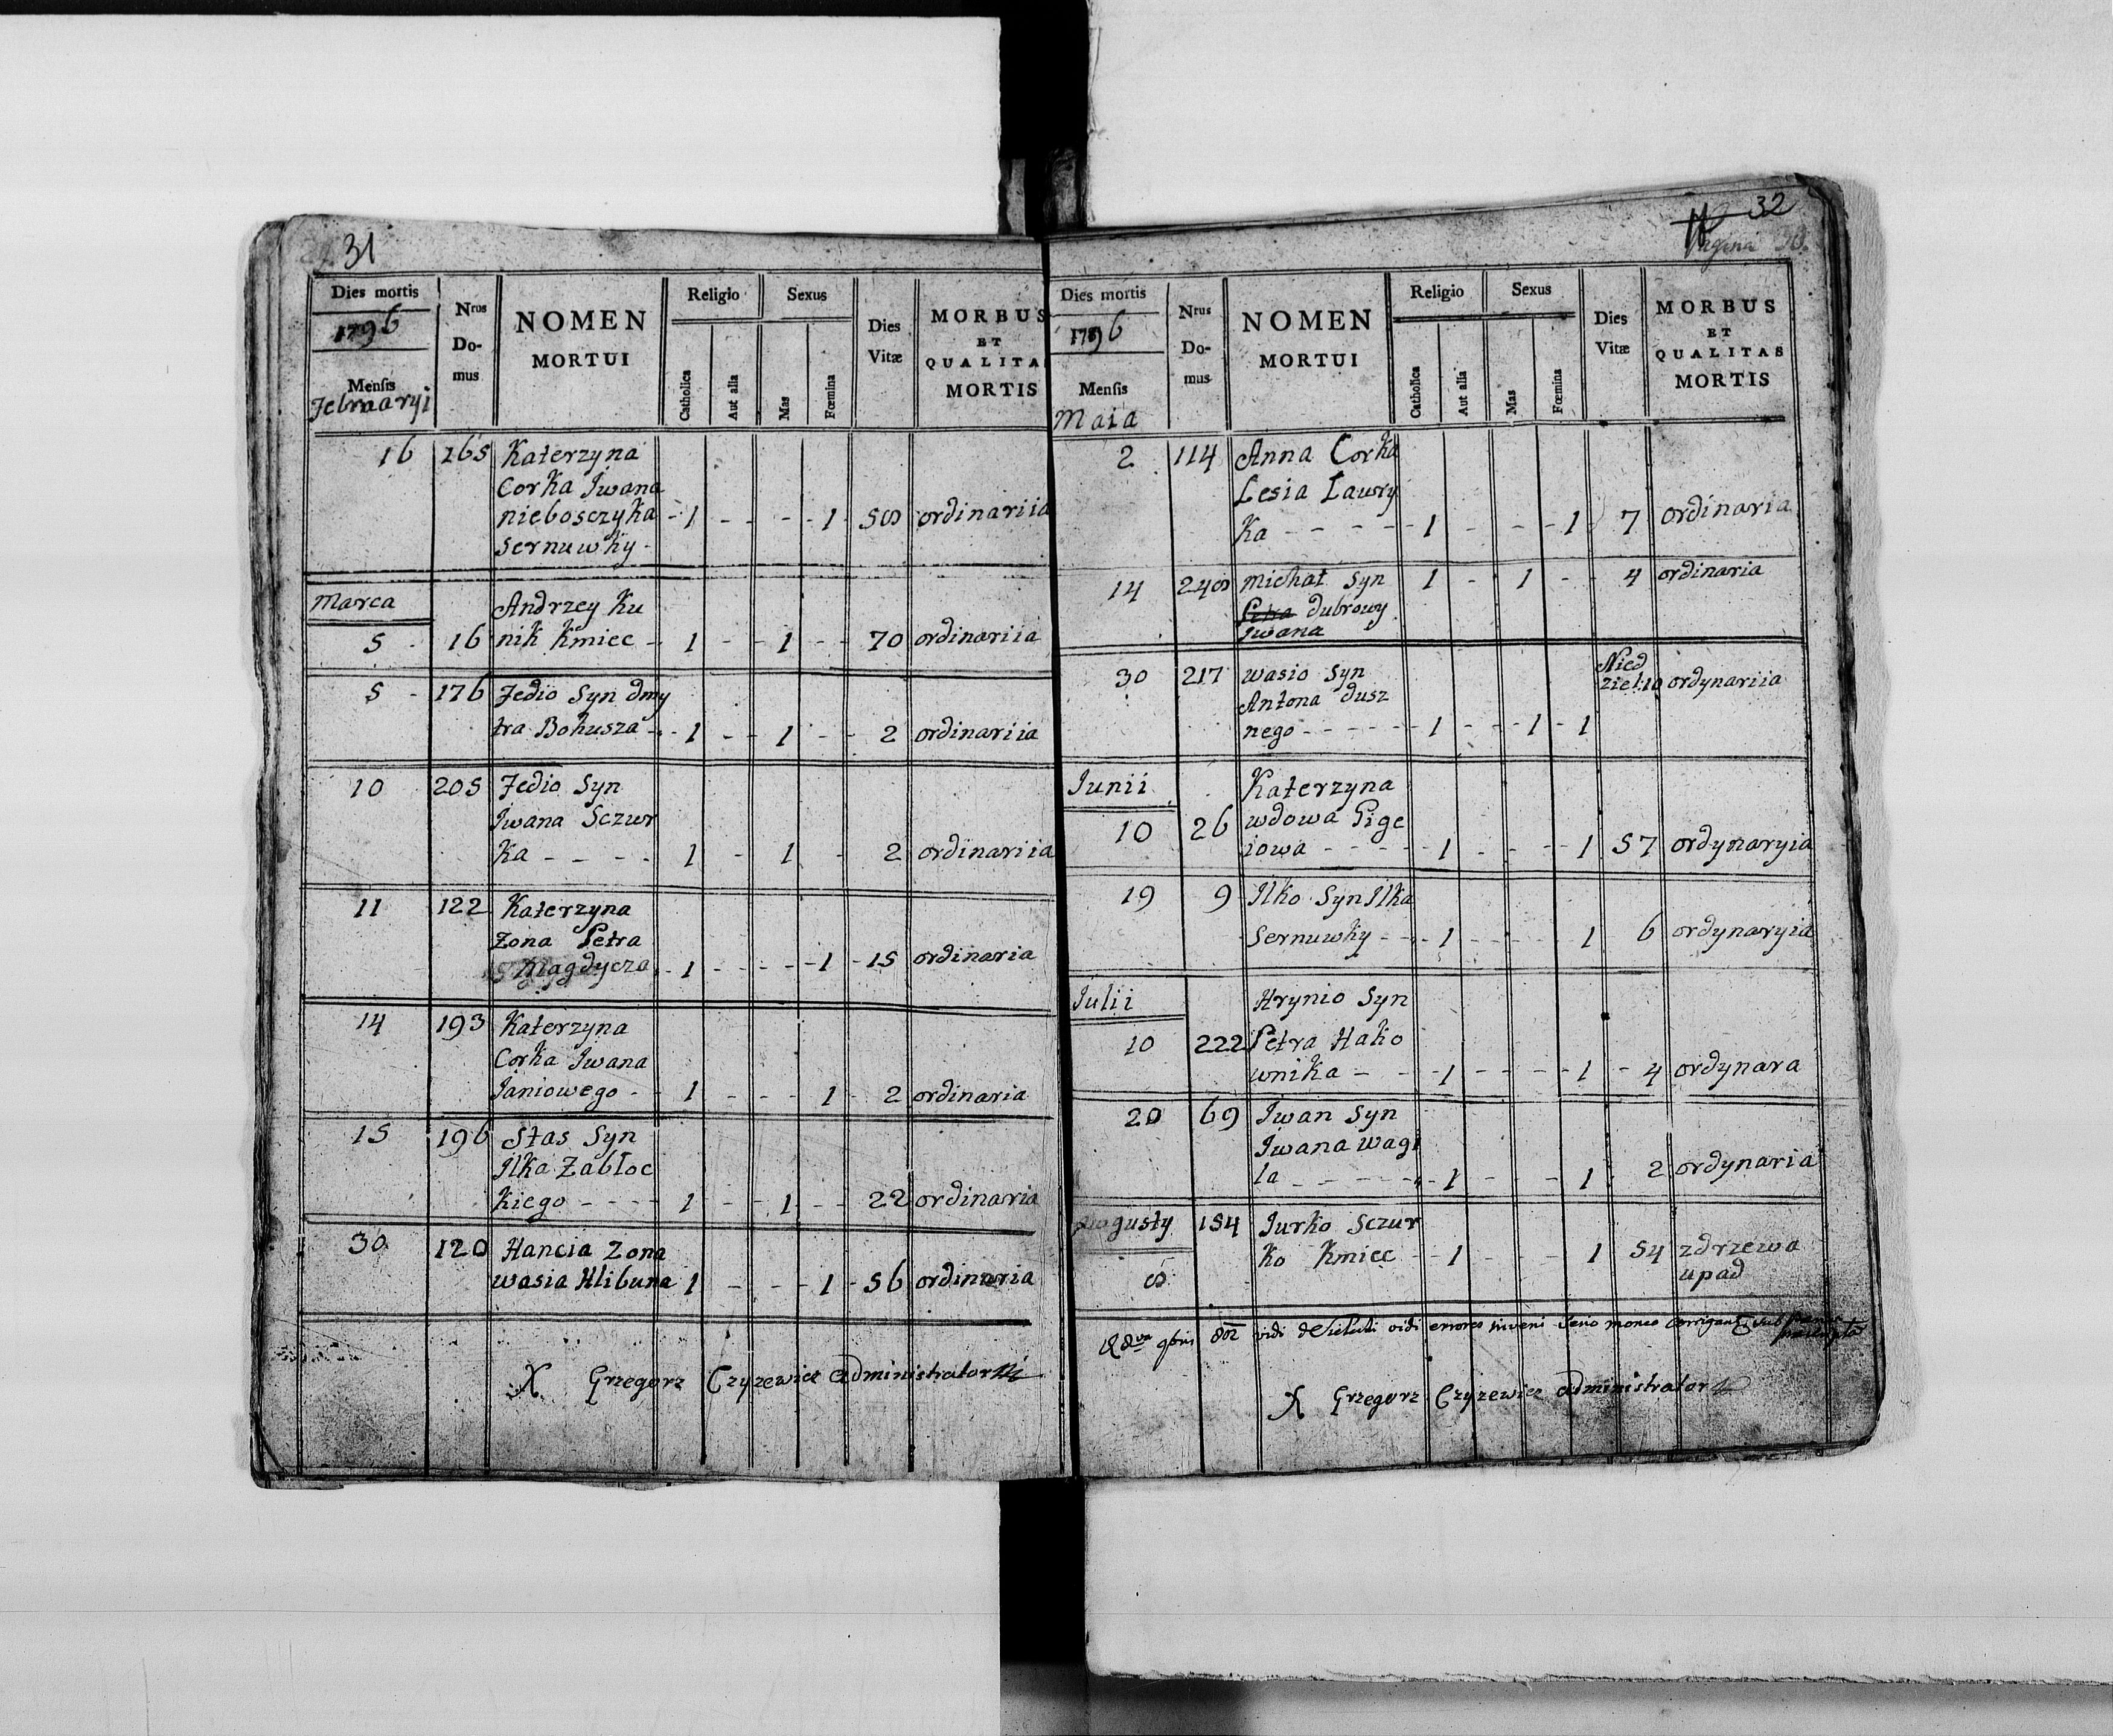 31
Dies mortis
1796
Mensis
Februaryi
Nrus
Do-
mus
NOMEN
MORTUI
Religio
Catholica
Aut alia
Sexus
Mas
Fœmina
Dies
Vitæ
MORBUS
ET
QUALITA
MORTIS
16 265 Katerzyna
Corka Jwana
nieboszczyka - 1 - - - - 1 - 50 ordinariia
Sernuwky -
Marca Andrzey Ku
5 16 nik Kmiec - 1 - - 1 - - 70 ordinariia
5 - 176 Fedio Syn dmy
tra Bohusza - 1 - - 1 - - 2 ordinariia
10 205 Fedio Syn
Jwana Sczur
Ka - - - - 1 - 1 - 2 ordinariia
11 122 Katerzyna
Zona Petra
Magdycza - 1 - - - - 1 - 15 ordinaria
14 193 Katerzyna
Corka Jwana
Janiowego - - 1 - - - 1 - 2 ordinaria
15 196 Stas Syn
Ilka Zabłoc
Kiego - - - - 1 - - 1 - - 22 ordinaria
30 120 Hancia Zona
wasia Hlibuna 1 - - - 1 - 56 ordinaria
X Grzegorz Czyzewicz administrator
32
Pagina 30.
Dies mortis
1796
Mensis
Maia
Nrus
Do-
mus
NOMEN
MORTUI
Religio
Catholica
Aut alia
Sexus
Mas
Fœmina
Dies
Vitæ
MORBUS
ET
QUALITAS
MORTIS
2 114 Anna Corka
Lesia Ławry
Ka - - - - - 1 - - - - 1 7 ordinaria
14 240 michał Syn 1 - 1 - - 4 ordinaria
Petra dubrowy
Jwana
30 217 wasio Syn Nied
Antona dusz ziel: 10 ordynariia
nego - - - - - 1 - - - 1 - 1
Junii Katerzyna
10 26 wdowa Pige
iowa - - - - - 1 - - - - 1 57 ordynaryia
19 9 Ilko Syn Ilka
Sernuwky - - - 1 - - - - 1 6 ordynaryia
Julii Hrynio Syn
10 222 Petra Hako
wnika - - - 1 - - - - 1 - 4 ordynara
20 69 Jwan Syn
Jwana wagi
la - - - - - 1 - - - 1 2 ordynaria
Augusty 154 Jurko Sczur
Ko Kmiec - - 1 - - - 1 54 zdrzewa
upad
802 vidi errores inveni serio moneo corrigant sub
X Grzegorz Czyzewicz administrator